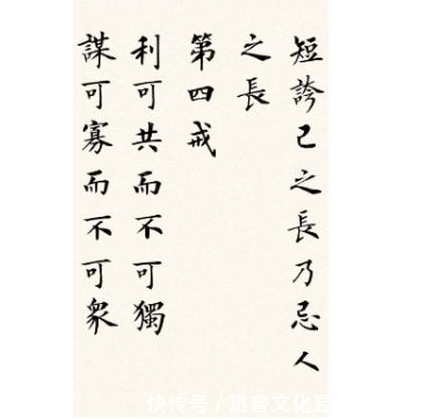 短誇己之長乃忌人
之長
第四戒
利可共而不可獨
謀可寡而不可衆
快传号/惠普文化